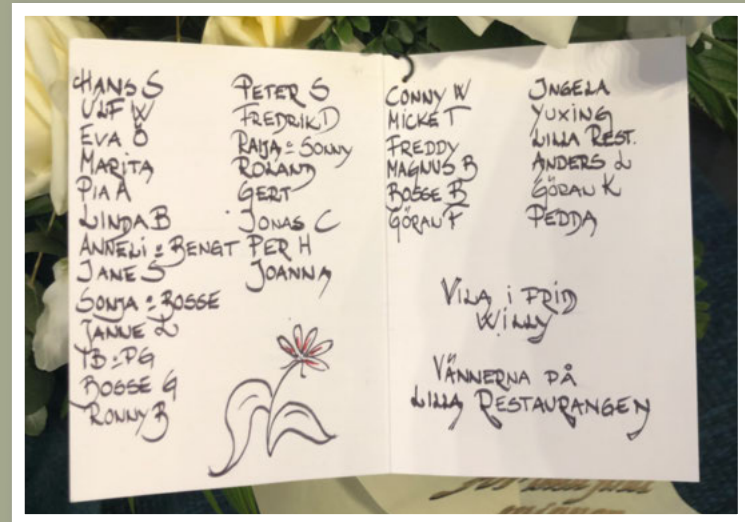 HANS S
ULF W
EVA Ö
MARITA
PIA A
LINDA B
ANNELI & BENGT
JANE S
SONJA & BOSSE
JANNE L
TB & PG
BOSSE G
RONNY B
PETER S
FREDRIK D
RAIJA & SONNY
ROLAND
GERT
JONAS C
PER H
JOANNA
CONNY W
MICKE T
FREDDY
MAGNUS B
BOSSE B
GÖRAN F
INGELA
YUXING
LILLA REST.
ANDERS L
GÖRAN K
PEDDA
VILA I FRID
WILLY
VÄNNERNA PÅ
LILLA RESTAURANGEN